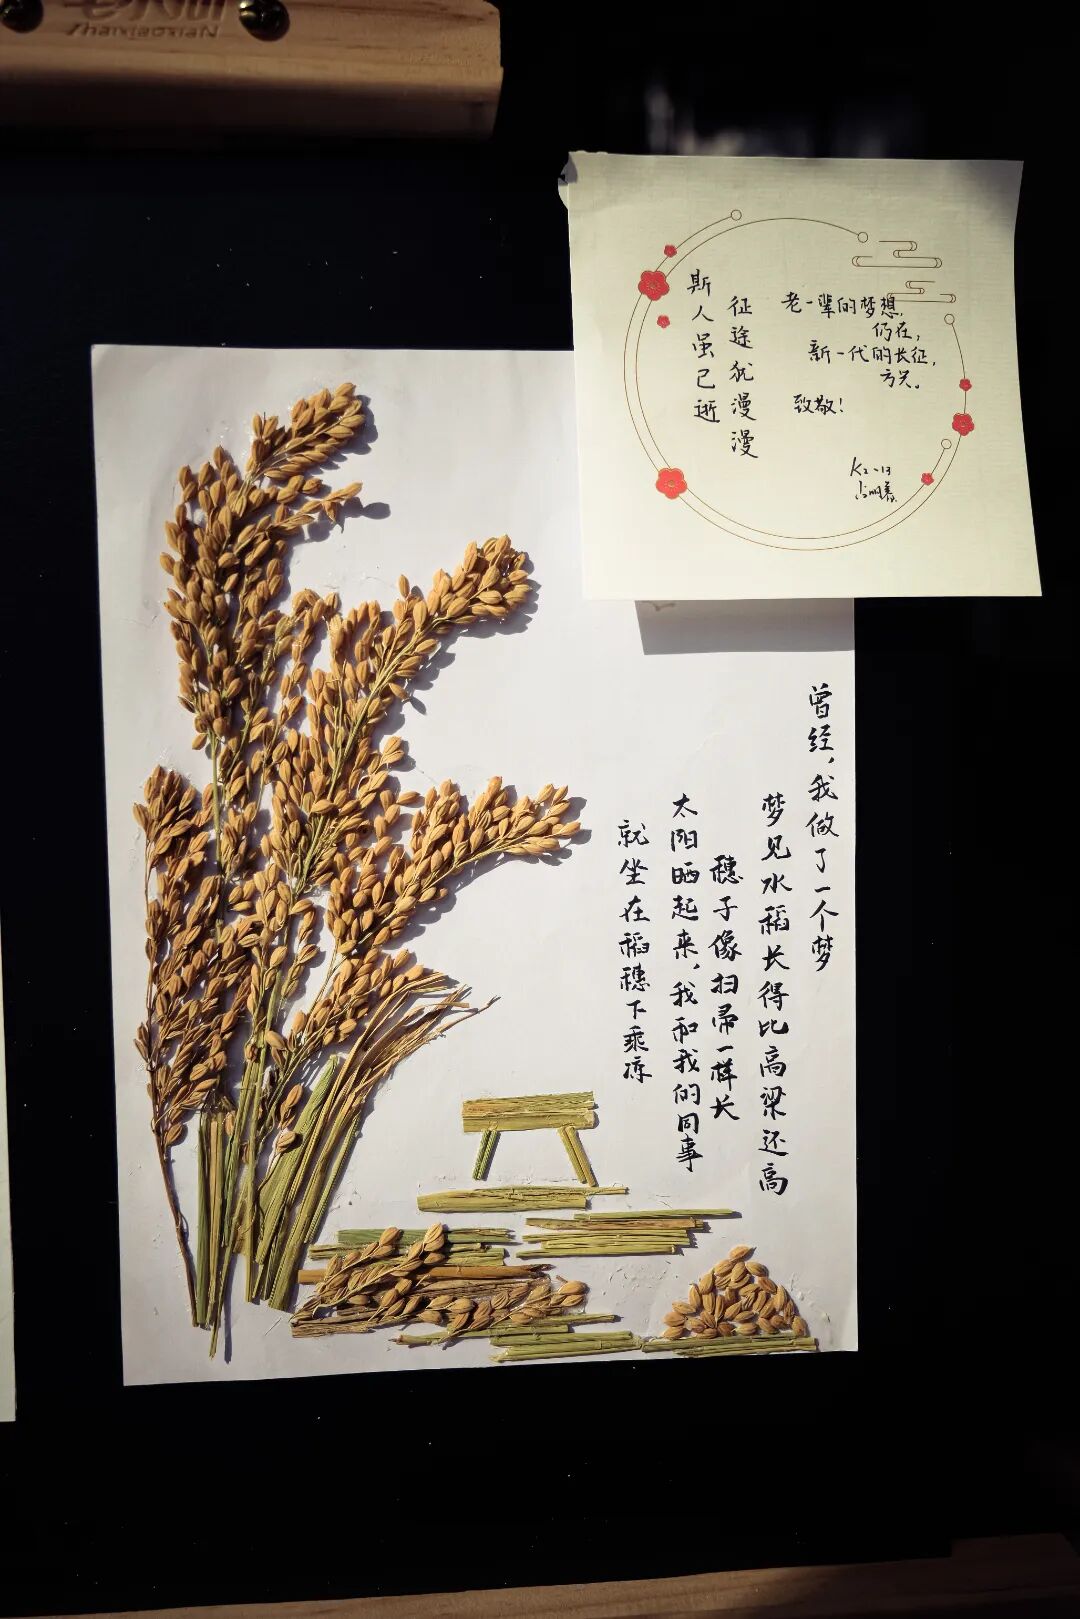 ZhaiXiaoxiaN
斯人虽已逝
征途犹漫漫
老一辈的梦想,
仍在,
新一代的长征,
方兴。
致敬!
K2-13
曾经,我做了一个梦
梦见水稻长得比高梁还高
穗子像扫帚一样长
太阳晒起来,我和我的同事
就坐在稻穗下乘凉